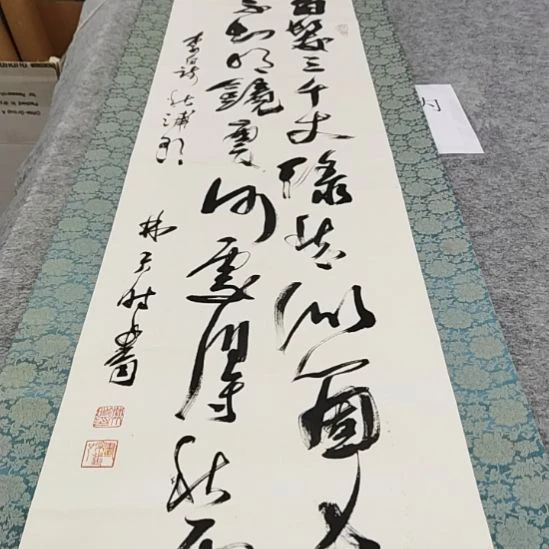 白髮三千丈緣愁似個長
不知明鏡裏何處得秋霜
李白詩 秋浦歌
林
書